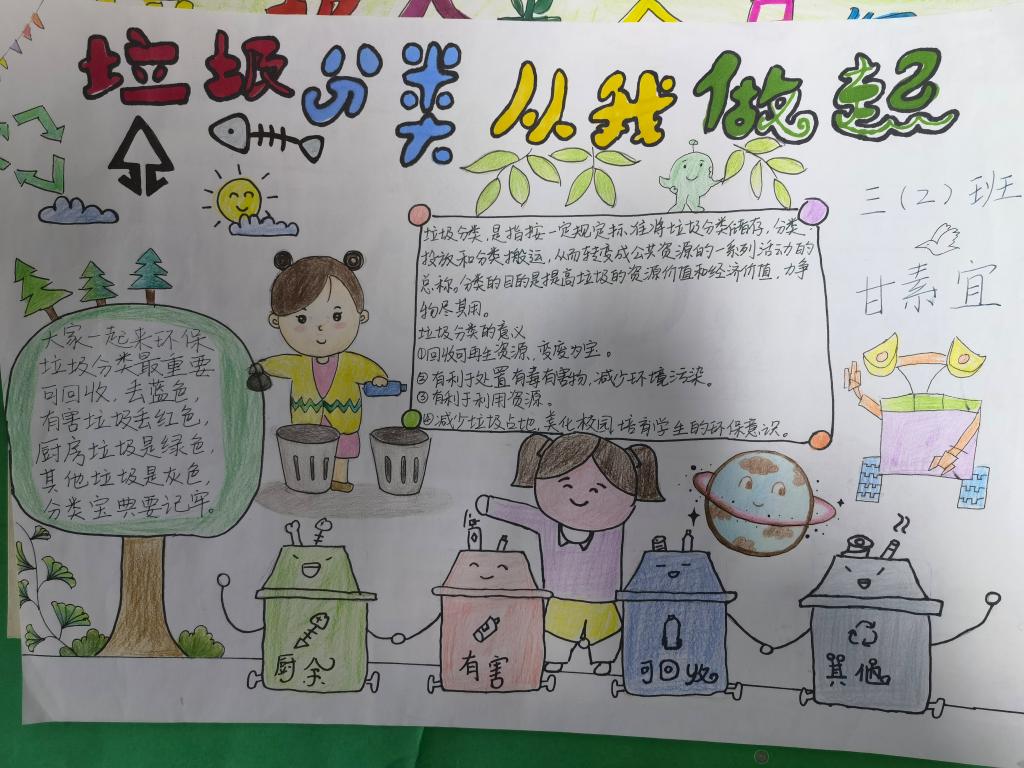 垃圾分类 从我做起
三（2）班
甘素宜
垃圾分类，是指按一定规定标准将垃圾分类储存，分类
投放和分类搬运，从而转变成公共资源的一系列活动的
总称。分类的目的是提高垃圾的资源价值和经济价值，力争
物尽其用。
垃圾分类的意义
①回收可再生资源，变废为宝。
②有利于处置有毒有害物，减少环境污染。
③有利于利用资源。
④减少垃圾占地，美化校园，培育学生的环保意识。
大家一起来环保
垃圾分类最重要
可回收，去蓝色，
有害垃圾丢红色，
厨房垃圾是绿色，
其他垃圾是灰色，
分类宝典要记牢。
厨余
有害
可回收
其他